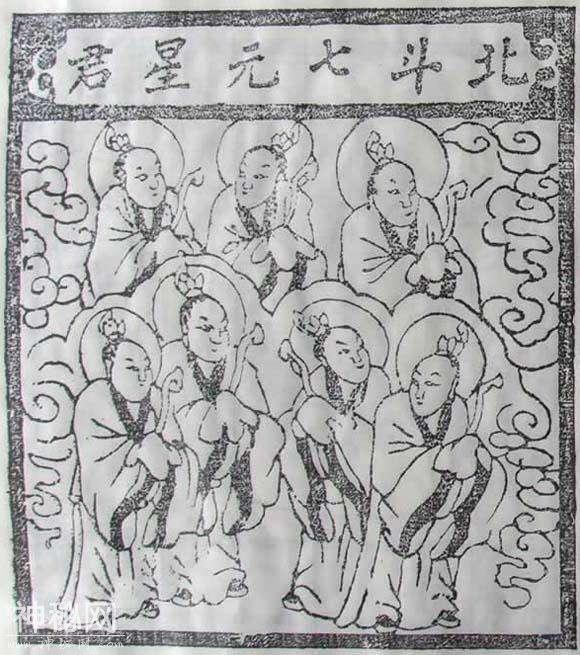 北斗七元星君
神秘网